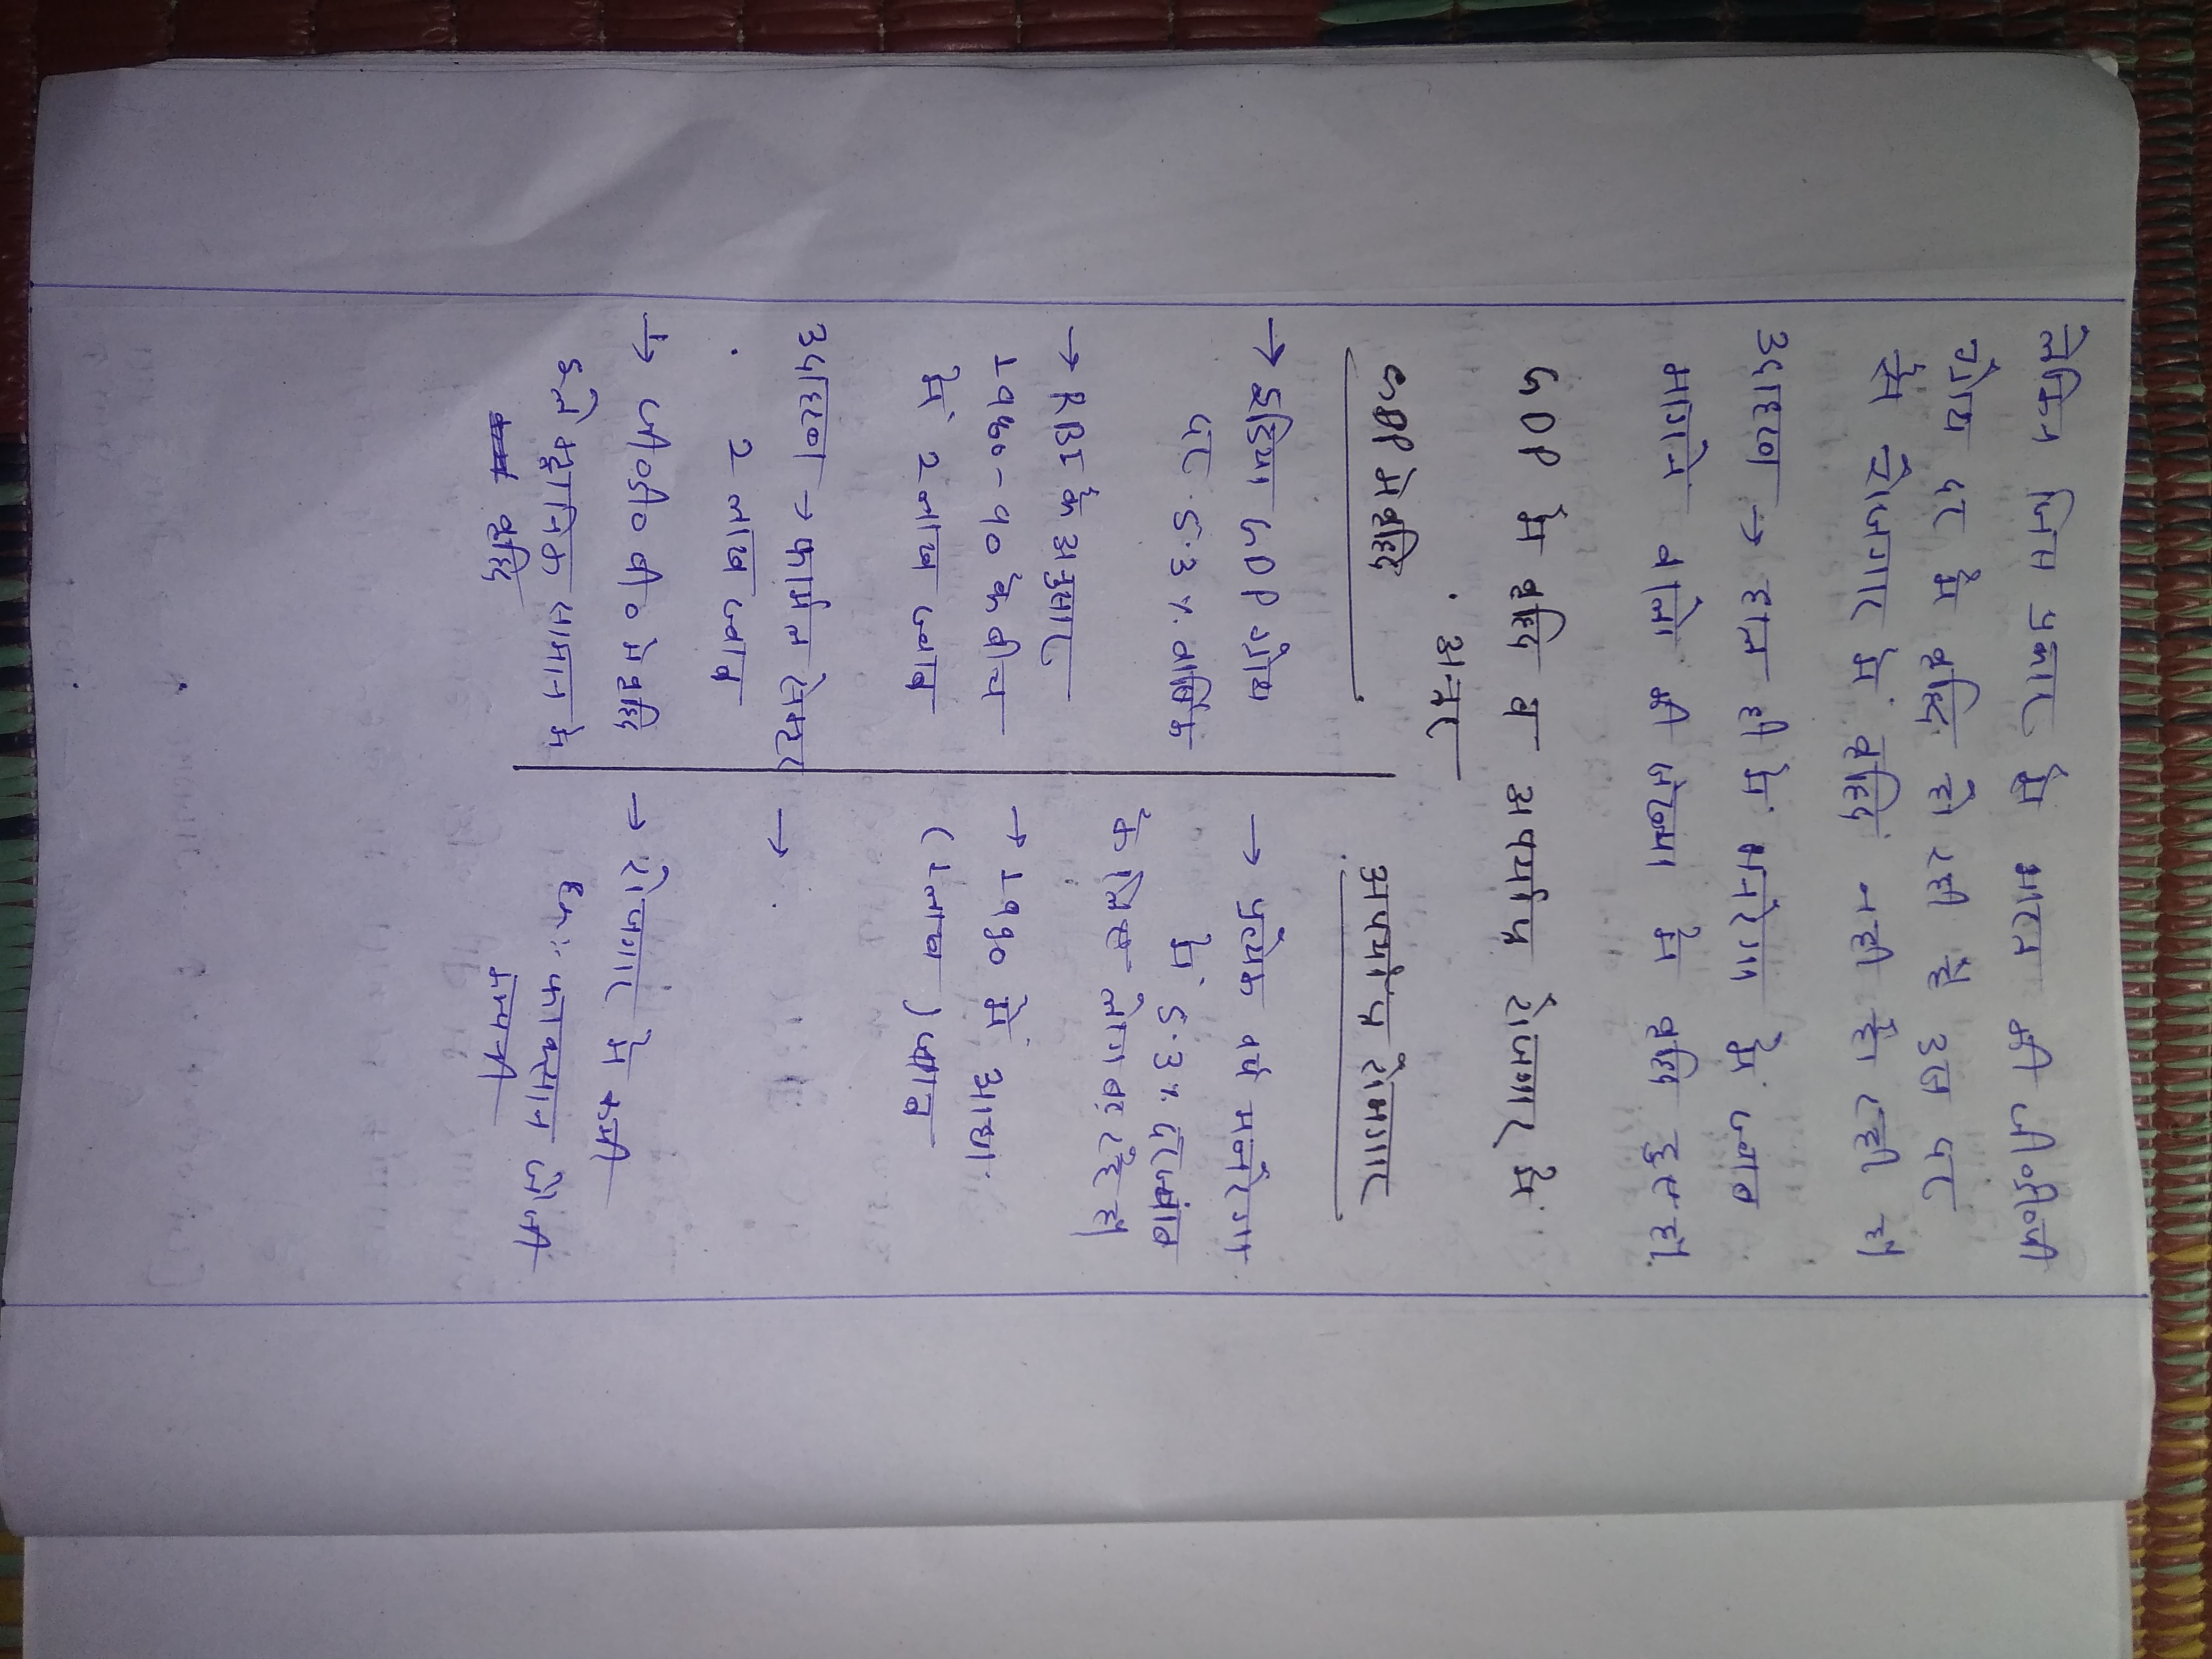 लेकिन जिस प्रकार से भारत की जी०डी०पी
ग्रोथ पर में वृद्धि हो रही है उस पर
से रोजगार में वृद्धि नही हो रही है।
उदाहरण → हाल ही में मनरेगा में जॉब
मागने वालो की संख्या में वृद्धि हुए है।
GDP में वृद्धि व अपर्याप्त रोजगार में
अन्तर
GDP में वृद्धि
→ इंडिया GDP ग्रोथ
पर 5.3 % वार्षिक
→ RBI के अनुसार
1980-90 के बीच
में 2 लाख जॉब
उदाहरण → फार्मल सेक्टर
2 लाख जॉब
→ जी०डी०पी० में वृद्धि
इलेक्ट्रानिक सामान में
वृद्धि
अपर्याप्त रोजगार
→ प्रत्येक वर्ष मनरेगा
में 5.3% जॉब
के लिए लोग बढ़ रहे है।
→ 1990 में आधा
(1 लाख) जॉब
→
→ रोजगार में कमी
Ex:- फाक्सान जैसी
कम्पनी